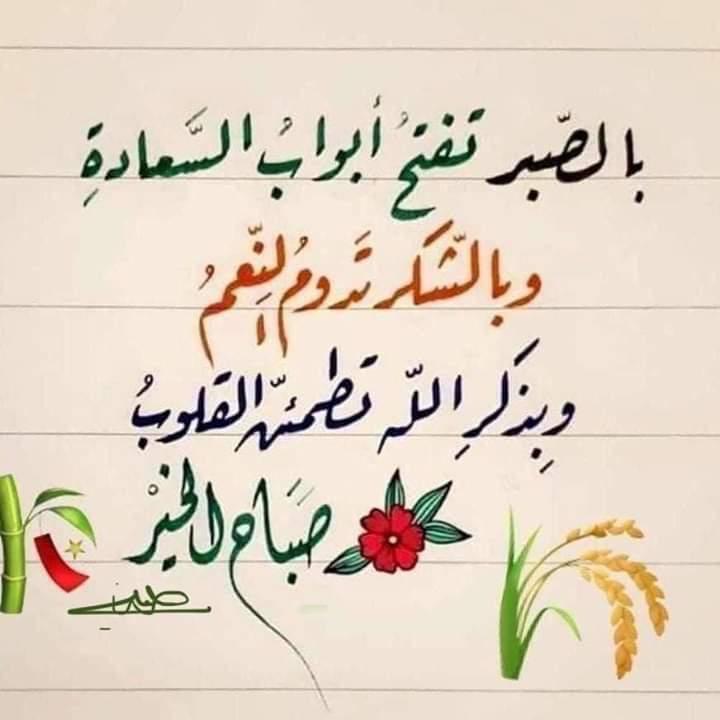 بالصّبر تفتحُ أبوابُ السَّعادةِ
وبالشّكر تَدومُ النِّعمُ
وبِذكرِ اللّه تطمئنّ القلوبُ
صَبَاح الخيْر